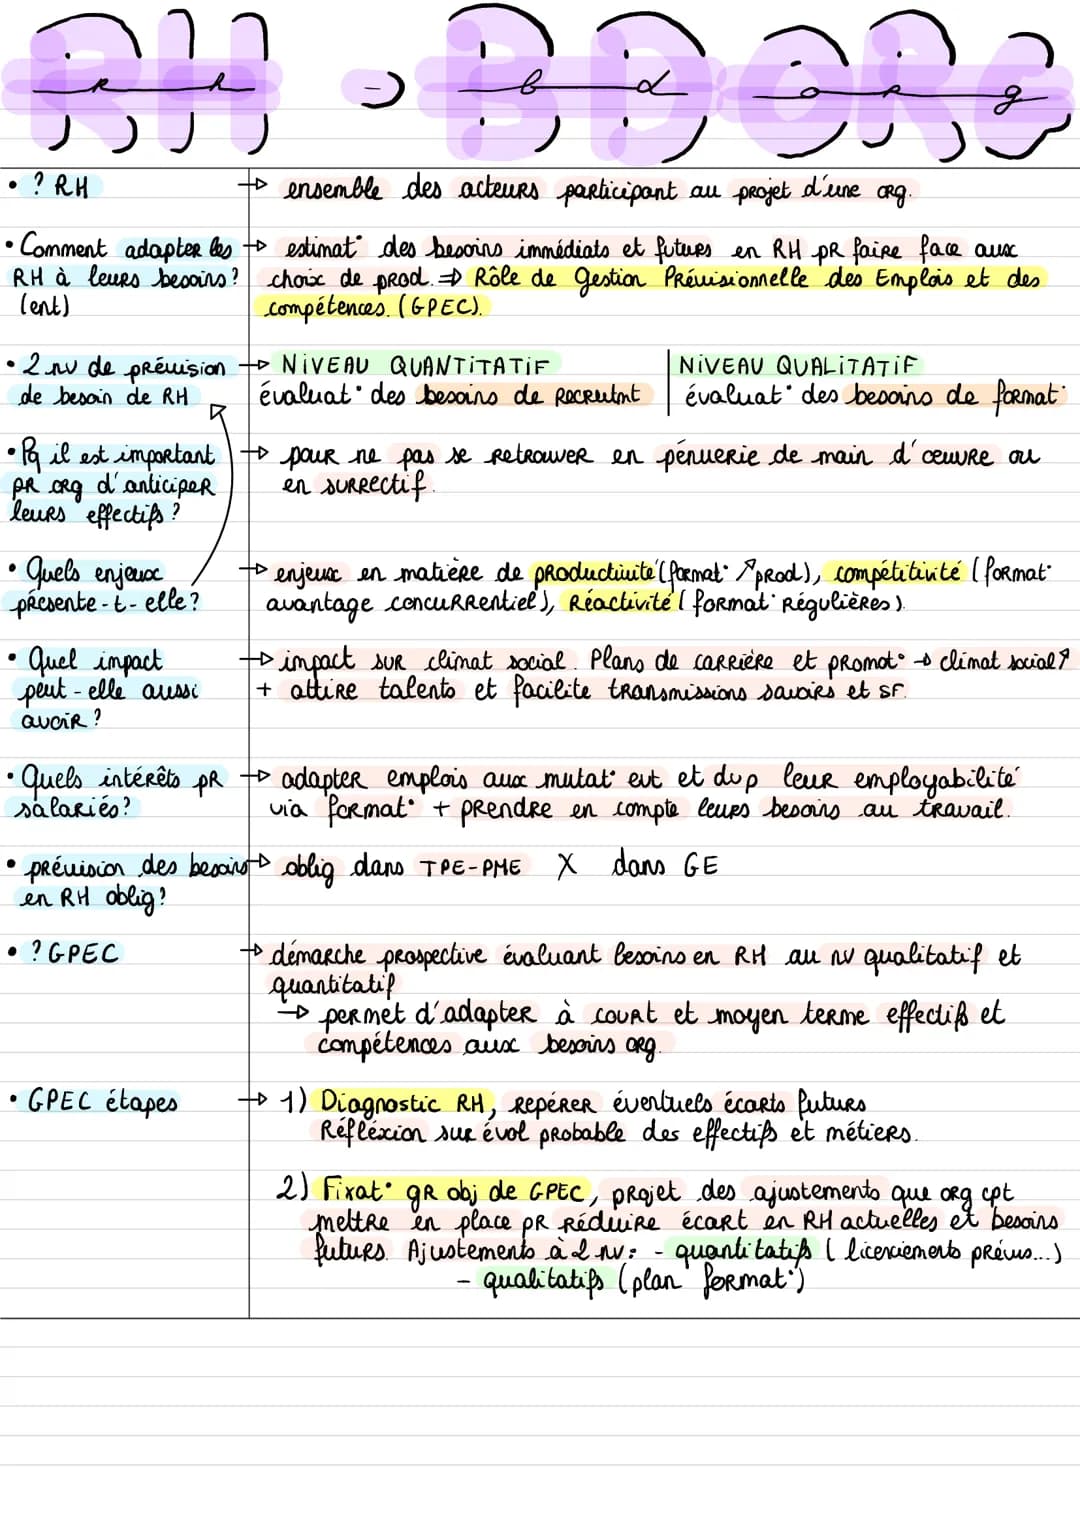 RH → BD ORG
• ? RH → ensemble des acteurs participant au projet d'une org.
• Comment adapter les RH à leurs besoins? (ent)
→ estimat° des besoins immédiats et futurs en RH pR faire face aux
choix de prod. ⇒ Rôle de Gestion Prévisionnelle des Emplois et des
compétences. (GPEC).
• 2 nv de prévision
de besoin de RH
→ NIVEAU QUANTITATIF
évaluat° des besoins de Recrutmt
NIVEAU QUALITATIF
évaluat° des besoins de format°
• Pq il est important
pR org d'anticiper
leurs effectifs ?
→ pour ne pas se retrouver en pénuerie de main d'œuvre ou
en surrectif.
• Quels enjeux
présente-t-elle?
→ enjeux en matière de productivité (format° ↗prod), compétitivité (format°
avantage concurrentiel), Réactivité (format° Régulières).
• Quel impact
peut-elle aussi
avoir ?
→ impact sur climat social. Plans de carrière et promot° → climat social ↗
+ attire talents et facilite transmissions savoirs et SF.
• Quels intérêts pR
salariés?
→ adapter emplois aux mutat° evt et dvp leur employabilité
via format° + prendre en compte leurs besoins au travail.
• prévision des besoins
en RH oblig?
→ oblig dans TPE-PME X dans GE
• ? GPEC
→ démarche prospective évaluant besoins en RH au nv qualitatif et
quantitatif
→ permet d'adapter à court et moyen terme effectifs et
compétences aux besoins org.
• GPEC étapes
→ 1) Diagnostic RH, repérer éventuels écarts futurs
Réfléxion sur évol probable des effectifs et métiers.
2) Fixat° gR obj de GPEC, projet des ajustements que org cpt
mettre en place pR réduire écart en RH actuelles et besoins
futurs. Ajustements à 2 nv: - quantitatifs (licenciements prévus...)
- qualitatifs (plan format°)